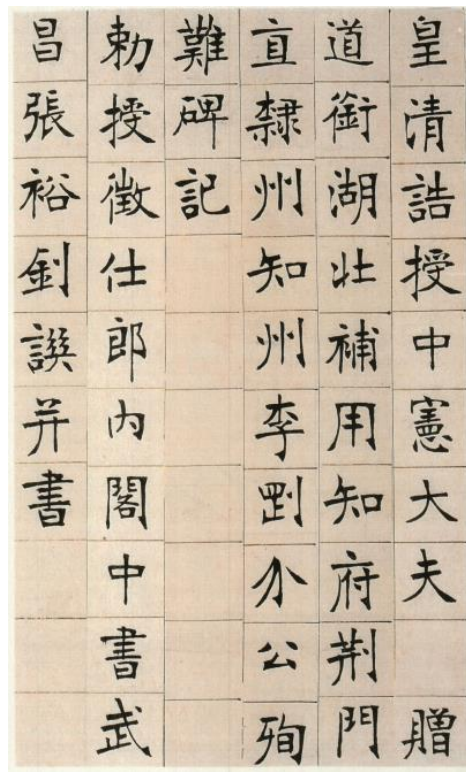 皇清誥授中憲大夫 贈
道銜湖北補用知府荆門
直隸州知州李剛介公殉
難碑記
勅授徵仕郎内閣中書武
昌張裕釗譔并書